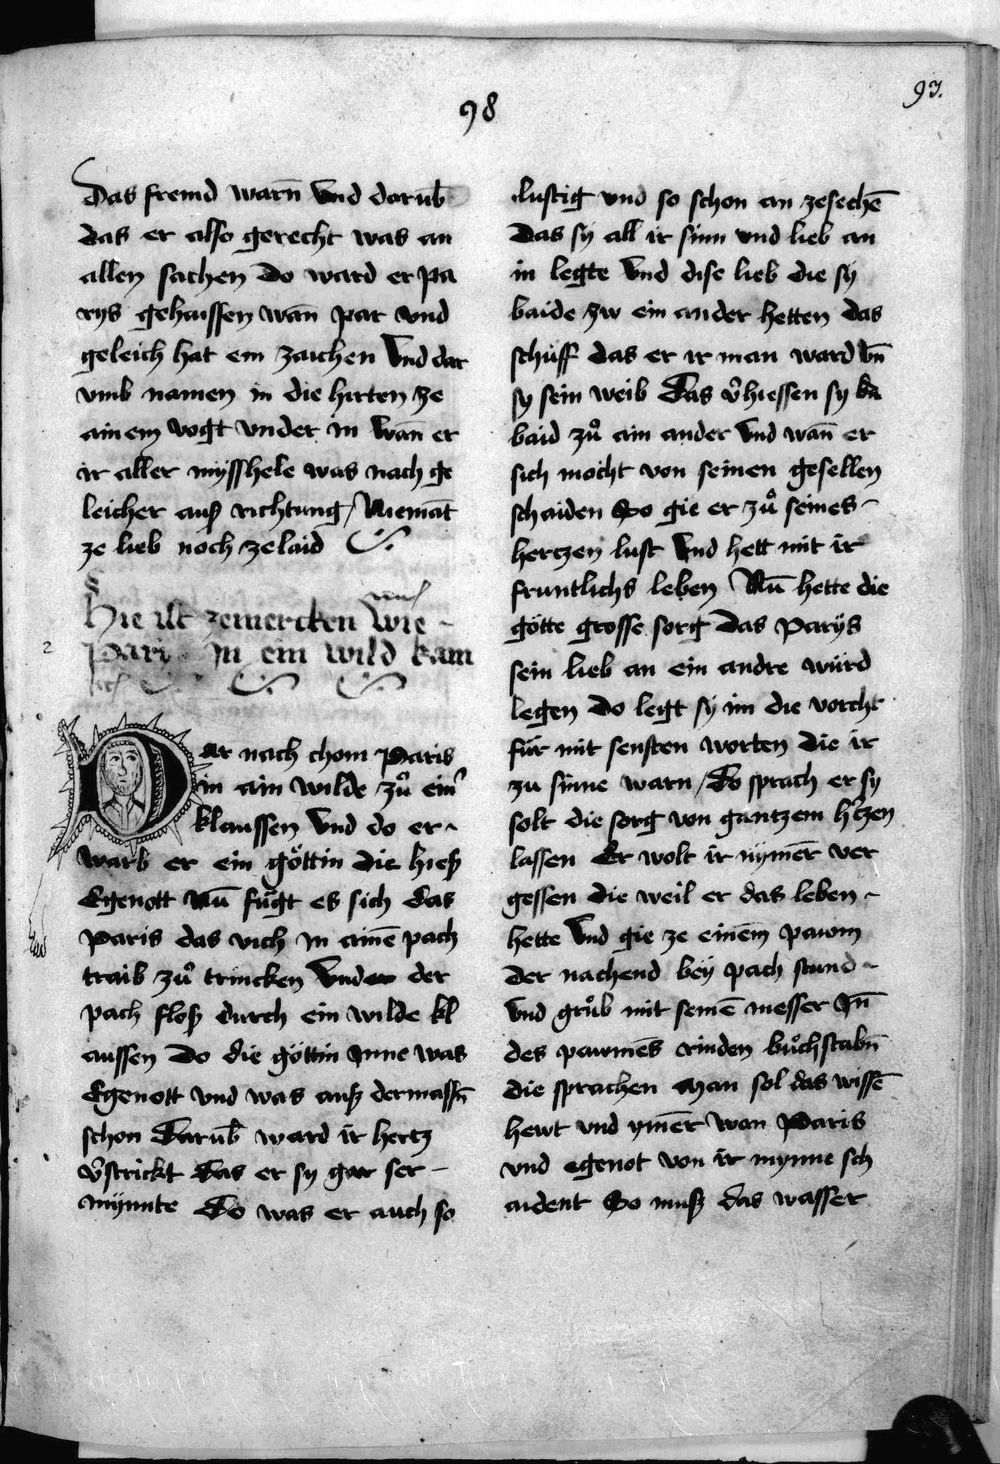 98
93.
Das fremd warn̄ Vnd dorub̄
das er also gerecht was an
allen sachen Do ward er pa
rys gehaissen wan̄ par vnd
geleich hat ein zaichen Vnd dar
vmb namen in die hirten ze
ainem vogt vnder in Wan̄ er
ir aller mysshele was nach ge
leicher auß richtung / Niemāt
ze lieb noch ze laid
Hie ist zemercken Wie
Pari In ein wild kam
Dar nach chom Paris
in ain wilde zů ein̾
klaussen Vnd do er
warb er ein gȯttin die hieß
Egenott Nū fůgt es sich das
Paris das vich in ainē pach
traib zů trincken Vnd der
pach floß durch ein wilde kl
aussen Do die gȯttin Inne was
Egenott vnd was auß dermassn̄
schon Darub̄ ward ir hertz
v̾strickt Das er sy gar ser
mynnte Do was er auch so
lustig vnd so schon an zesechē
Das sy all ir sinn vnd lieb an
in legte Vnd dise lieb die sy
baide zw ein ander hetten das
schuff das er ir man ward vn̄
sy sein weib Das v̾hiessen sy ba
baid zů ain ander Vnd wan̄ er
sich mocht von seinen gesellen
schaiden So gie er zů seines
hertzen lust Vnd hett mit ir
fruntlichs leben Nū hette die
götte grosse sorg Das Parijs
sein lieb an ein andre würd
legen Do legt sy im die vorcht
für mit senften worten die ir
zu sinne warn / Do sprach er sy
solt die sorg von gantzem h̾tzen
lassen Er wolt ir nymer̄ ver
gessen die weil er das leben
hette Vnd gie ze einem̄ pawm
der nachend bey pach stund
vnd grůb mit seinē messer In̄
des pawmes̄ rinden bůchstabn̄
die sprachen Man sol das wissē
hewt vnd ymer̄ wan Paris
vnd egenot von ir mynne sch
aident So muß das wasser